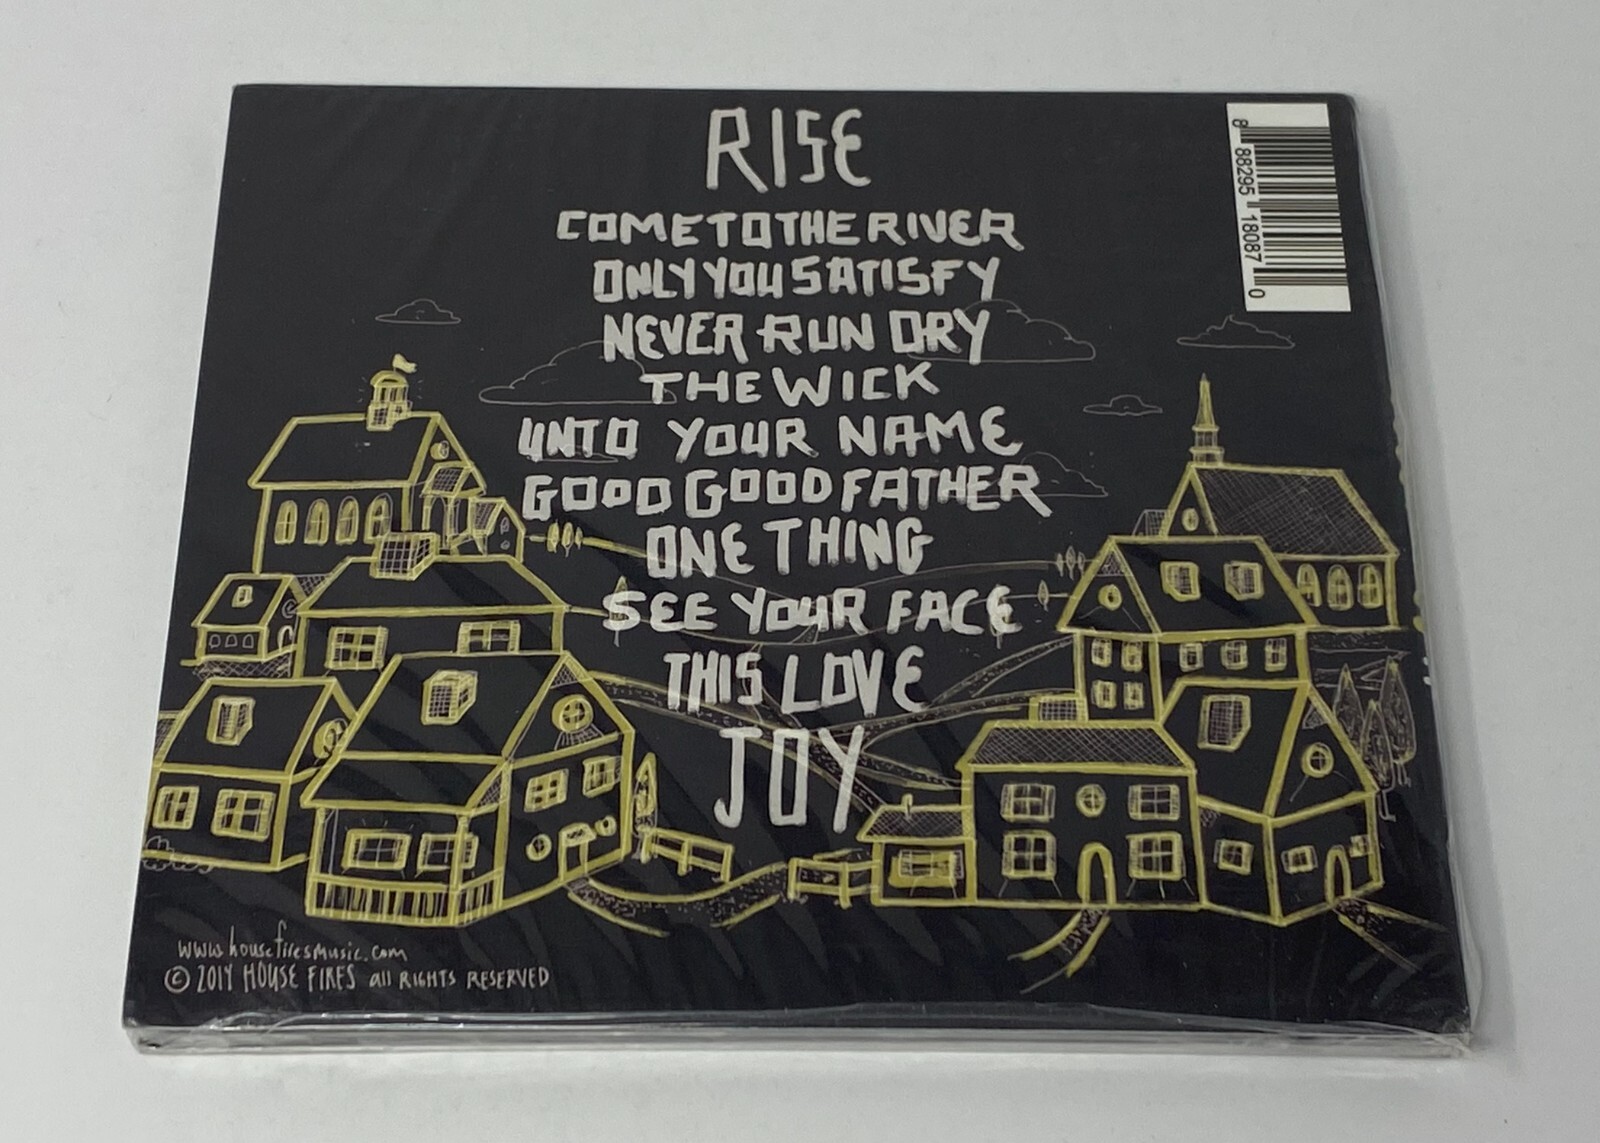 RISE
COME TO THE RIVER
ONLY YOU SATISFY
NEVER RUN DRY
THE WICK
UNTO YOUR NAME
GOOD GOOD FATHER
ONE THING
SEE YOUR FACE
THIS LOVE
JOY
8 88295 18087 0
www.housefiresmusic.com
© 2014 HOUSE FIRES all RIGHTS RESERVED